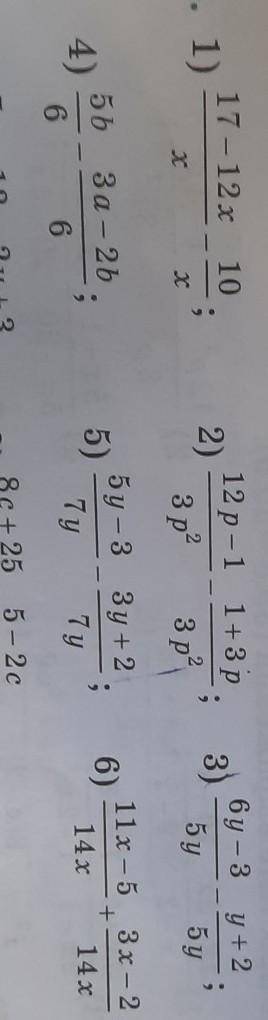 1) (17 − 12x)/x − 10/x; 2) (12p − 1)/(3p²) − (1 + 3p)/(3p²); 3) (6y − 3)/(5y) − (y + 2)/(5y);
4) 5b/6 − (3a − 2b)/6; 5) (5y − 3)/(7y) − (3y + 2)/(7y); 6) (11x − 5)/(14x) + (3x − 2)/(14x)
8c + 25 5 − 2c